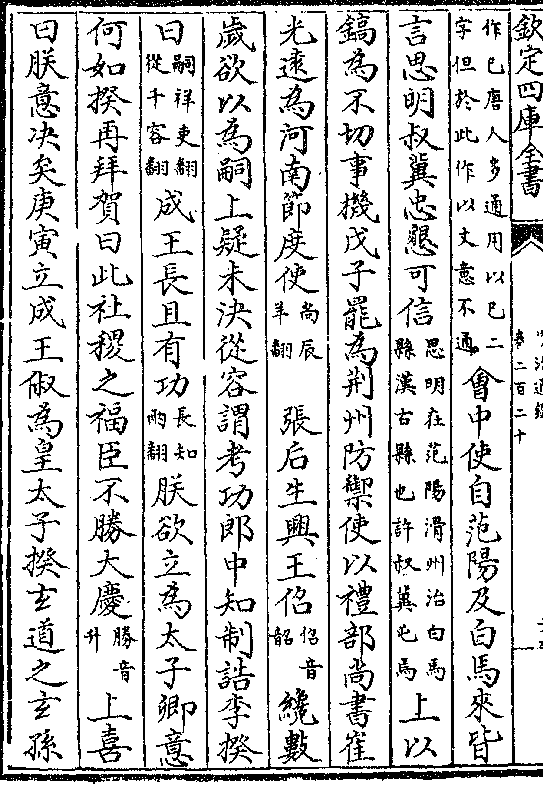 欽定四庫全書
卷二百二十
作已唐人多通用以已二字但於此作以文意不通會中使自范陽及白馬來皆
言思明叔冀忠懇可信思明在范陽滑州治白馬縣漢古縣也許叔冀屯焉上以
鎬為不切事機戊子罷為荆州防禦使以禮部尚書崔
光逺為河南節度使尚辰羊翻張后生興王佋佋音韶纔數
歲欲以為嗣上疑未決從容謂考功郎中知制誥李揆
曰嗣祥吏翻從千容翻成王長且有功長知兩翻朕欲立為太子卿意
何如揆再拜賀曰此社稷之福臣不勝大慶勝音升上喜
曰朕意決矣庚寅立成王俶為皇太子揆玄道之玄孫